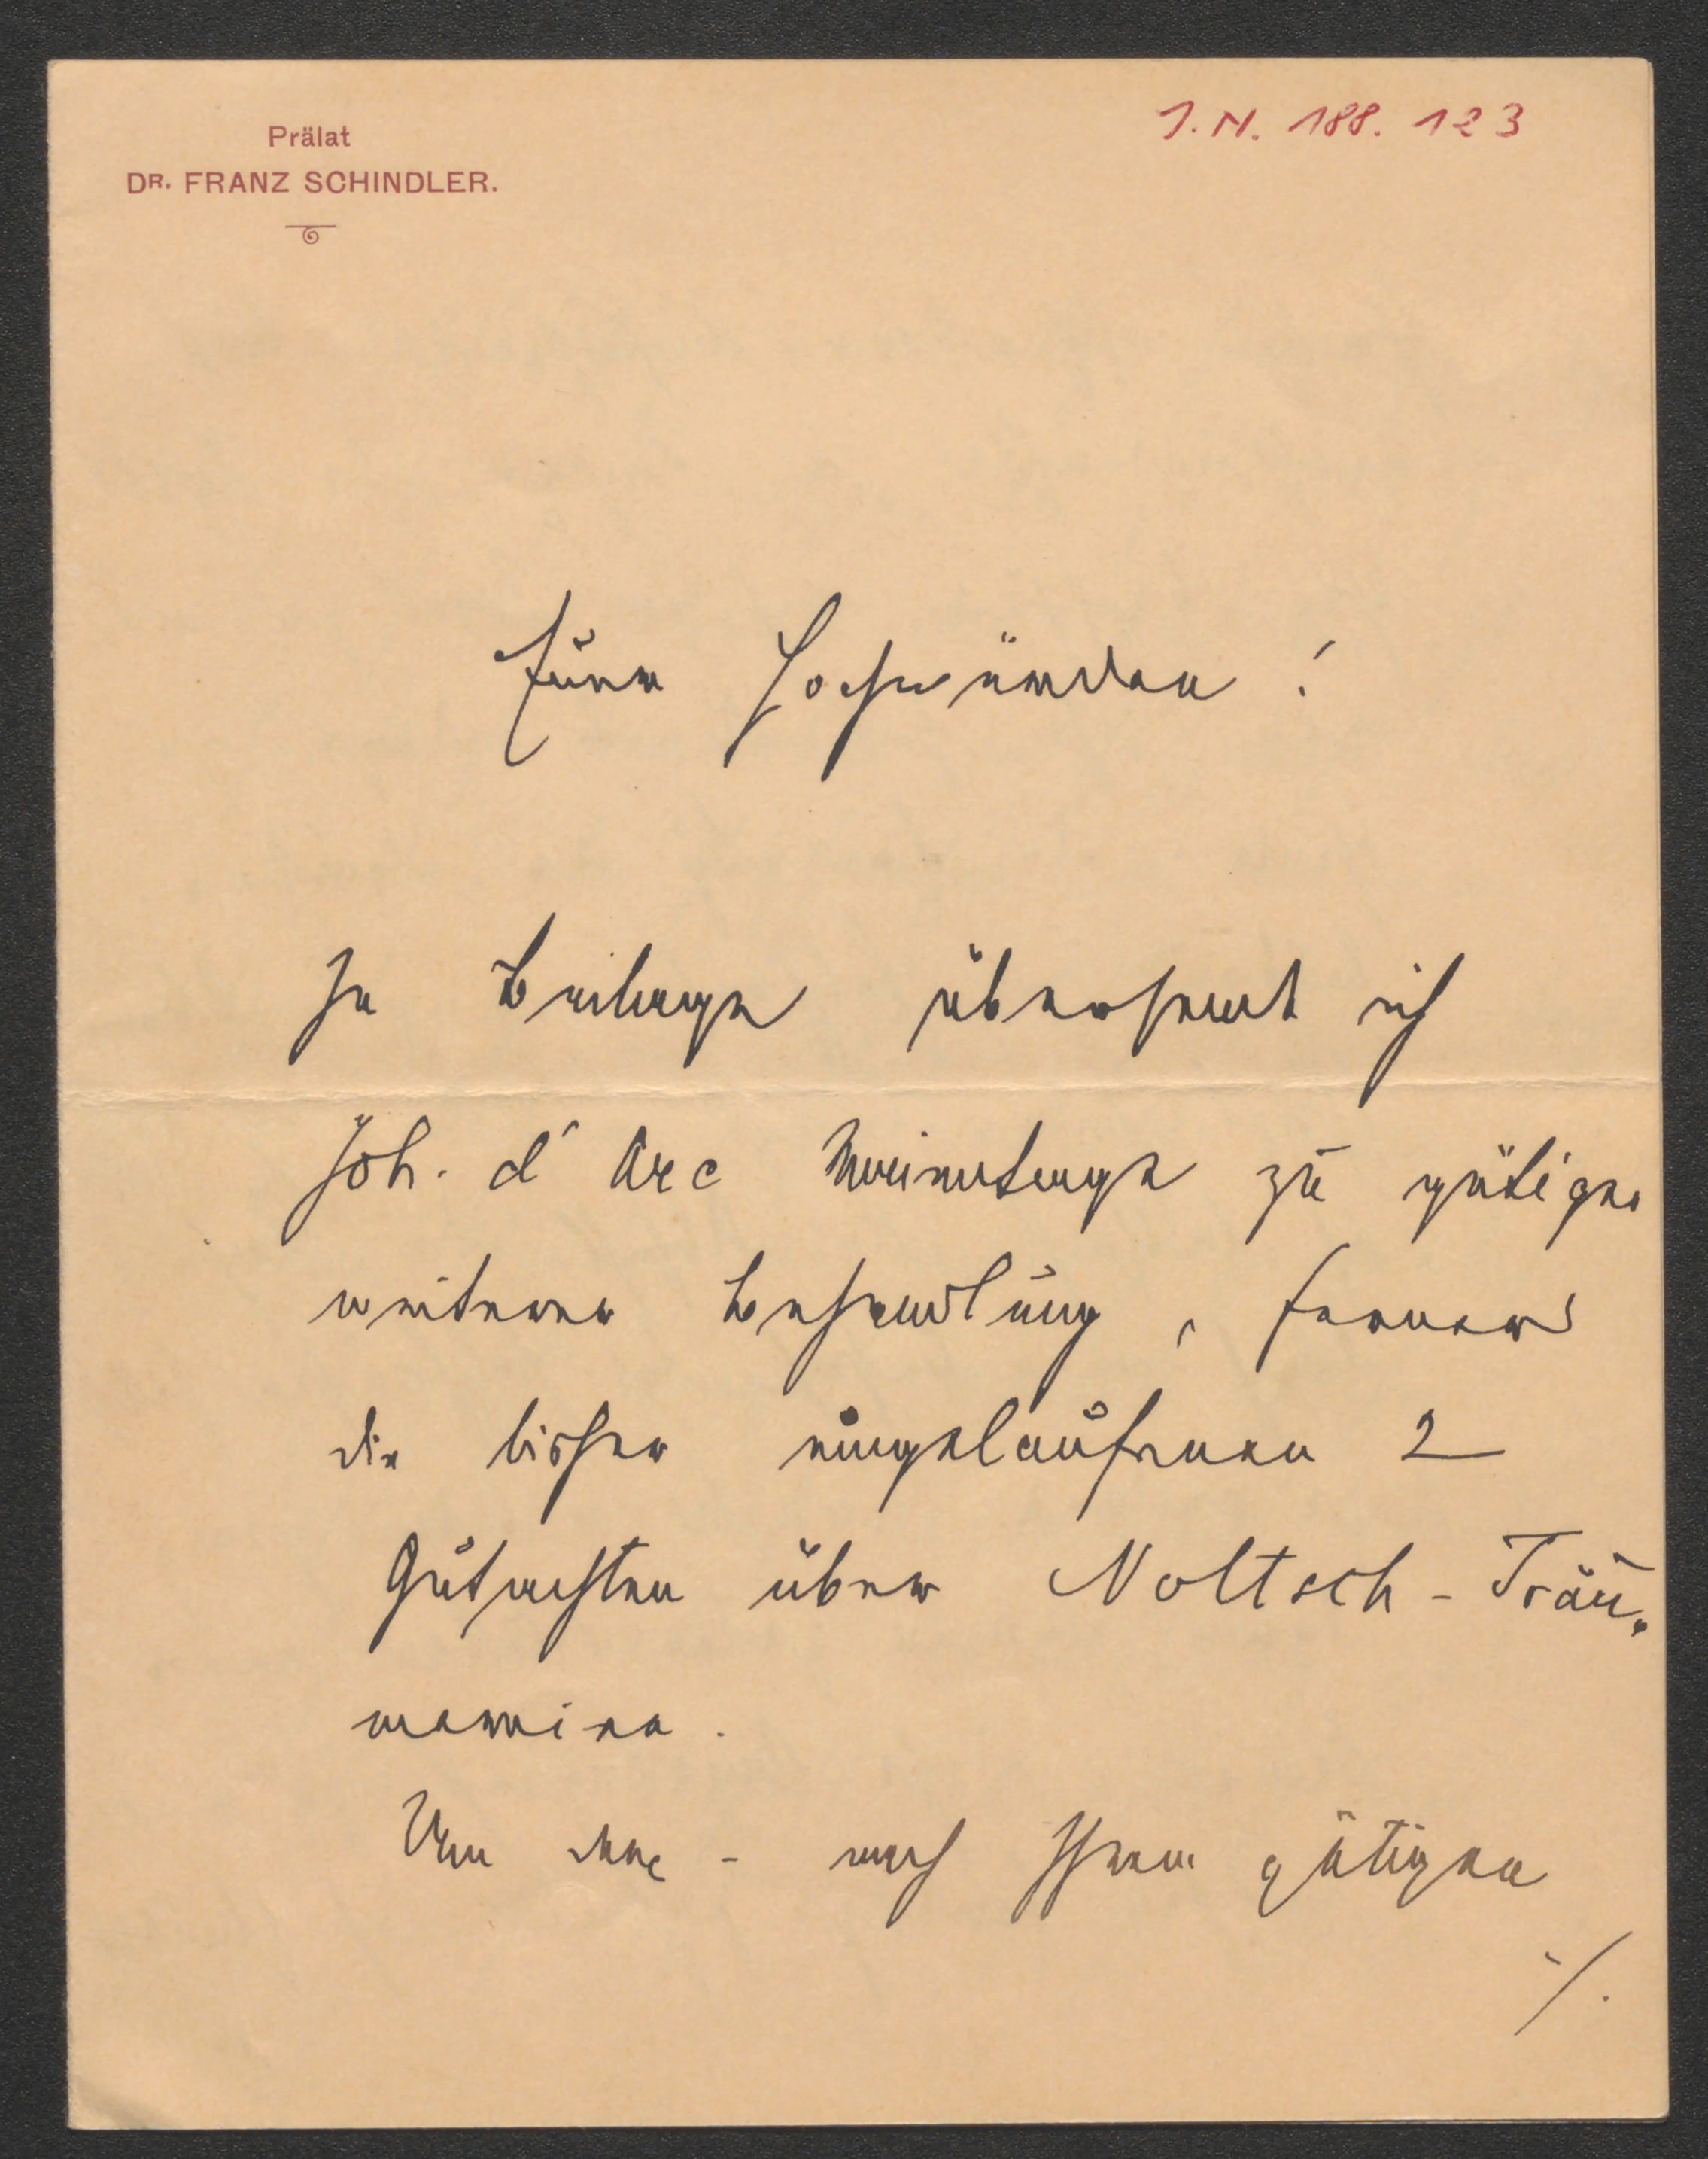 Prälat
DR. FRANZ SCHINDLER.
I.N. 188.123
Euer Hochwürden!
In Beilage übersend ich
Joh. d'Arc zu gütiger
weiterer Behandlung, ferner
die bisher eingelaufenen 2
Gutachten über Noltsch-Träu-
mereien.
Um den - nach Ihrem gütigen
./.